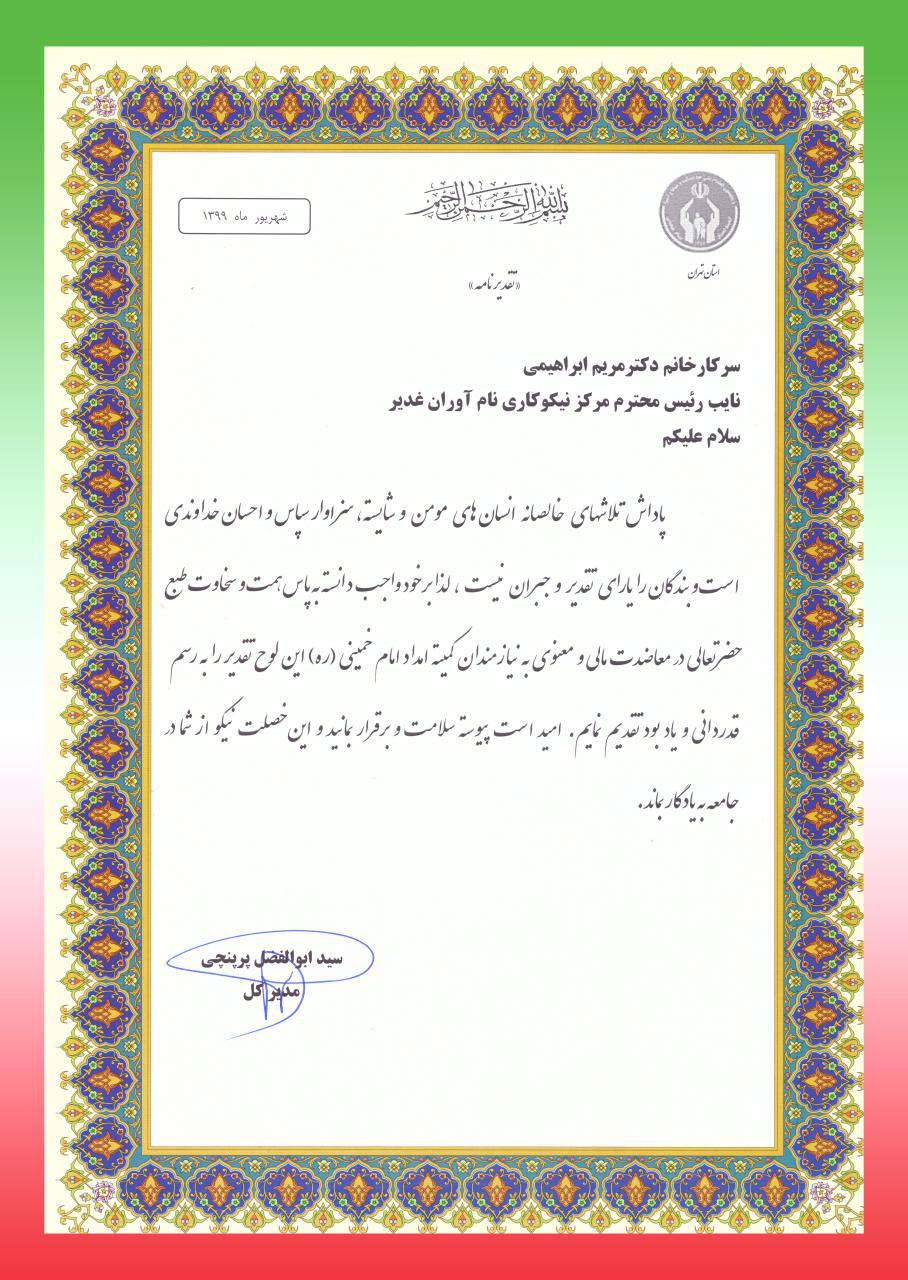 بسم الله الرحمن الرحیم
شهریور ماه ۱۳۹۹
استان تهران
«تقدیرنامه»
سرکارخانم دکترمریم ابراهیمی
نایب رئیس محترم مرکز نیکوکاری نام آوران غدیر
سلام علیکم
پاداش تلاشهای خالصانه انسان های مومن و شایسته، سزاوار سپاس و احسان خداوندی
است و بندگان را یارای تقدیر و جبران نیست ، لذا بر خود واجب دانسته به پاس همت و سخاوت طبع
حضرتعالی در معاضدت مالی و معنوی به نیازمندان کمیته امداد امام خمینی (ره) این لوح تقدیر را به رسم
قدردانی و یاد بود تقدیم نمایم . امید است پیوسته سلامت و برقرار بمانید و این خصلت نیکو از شما در
جامعه به یادگار بماند.
سید ابوالفضل پرپنچی
مدیر کل